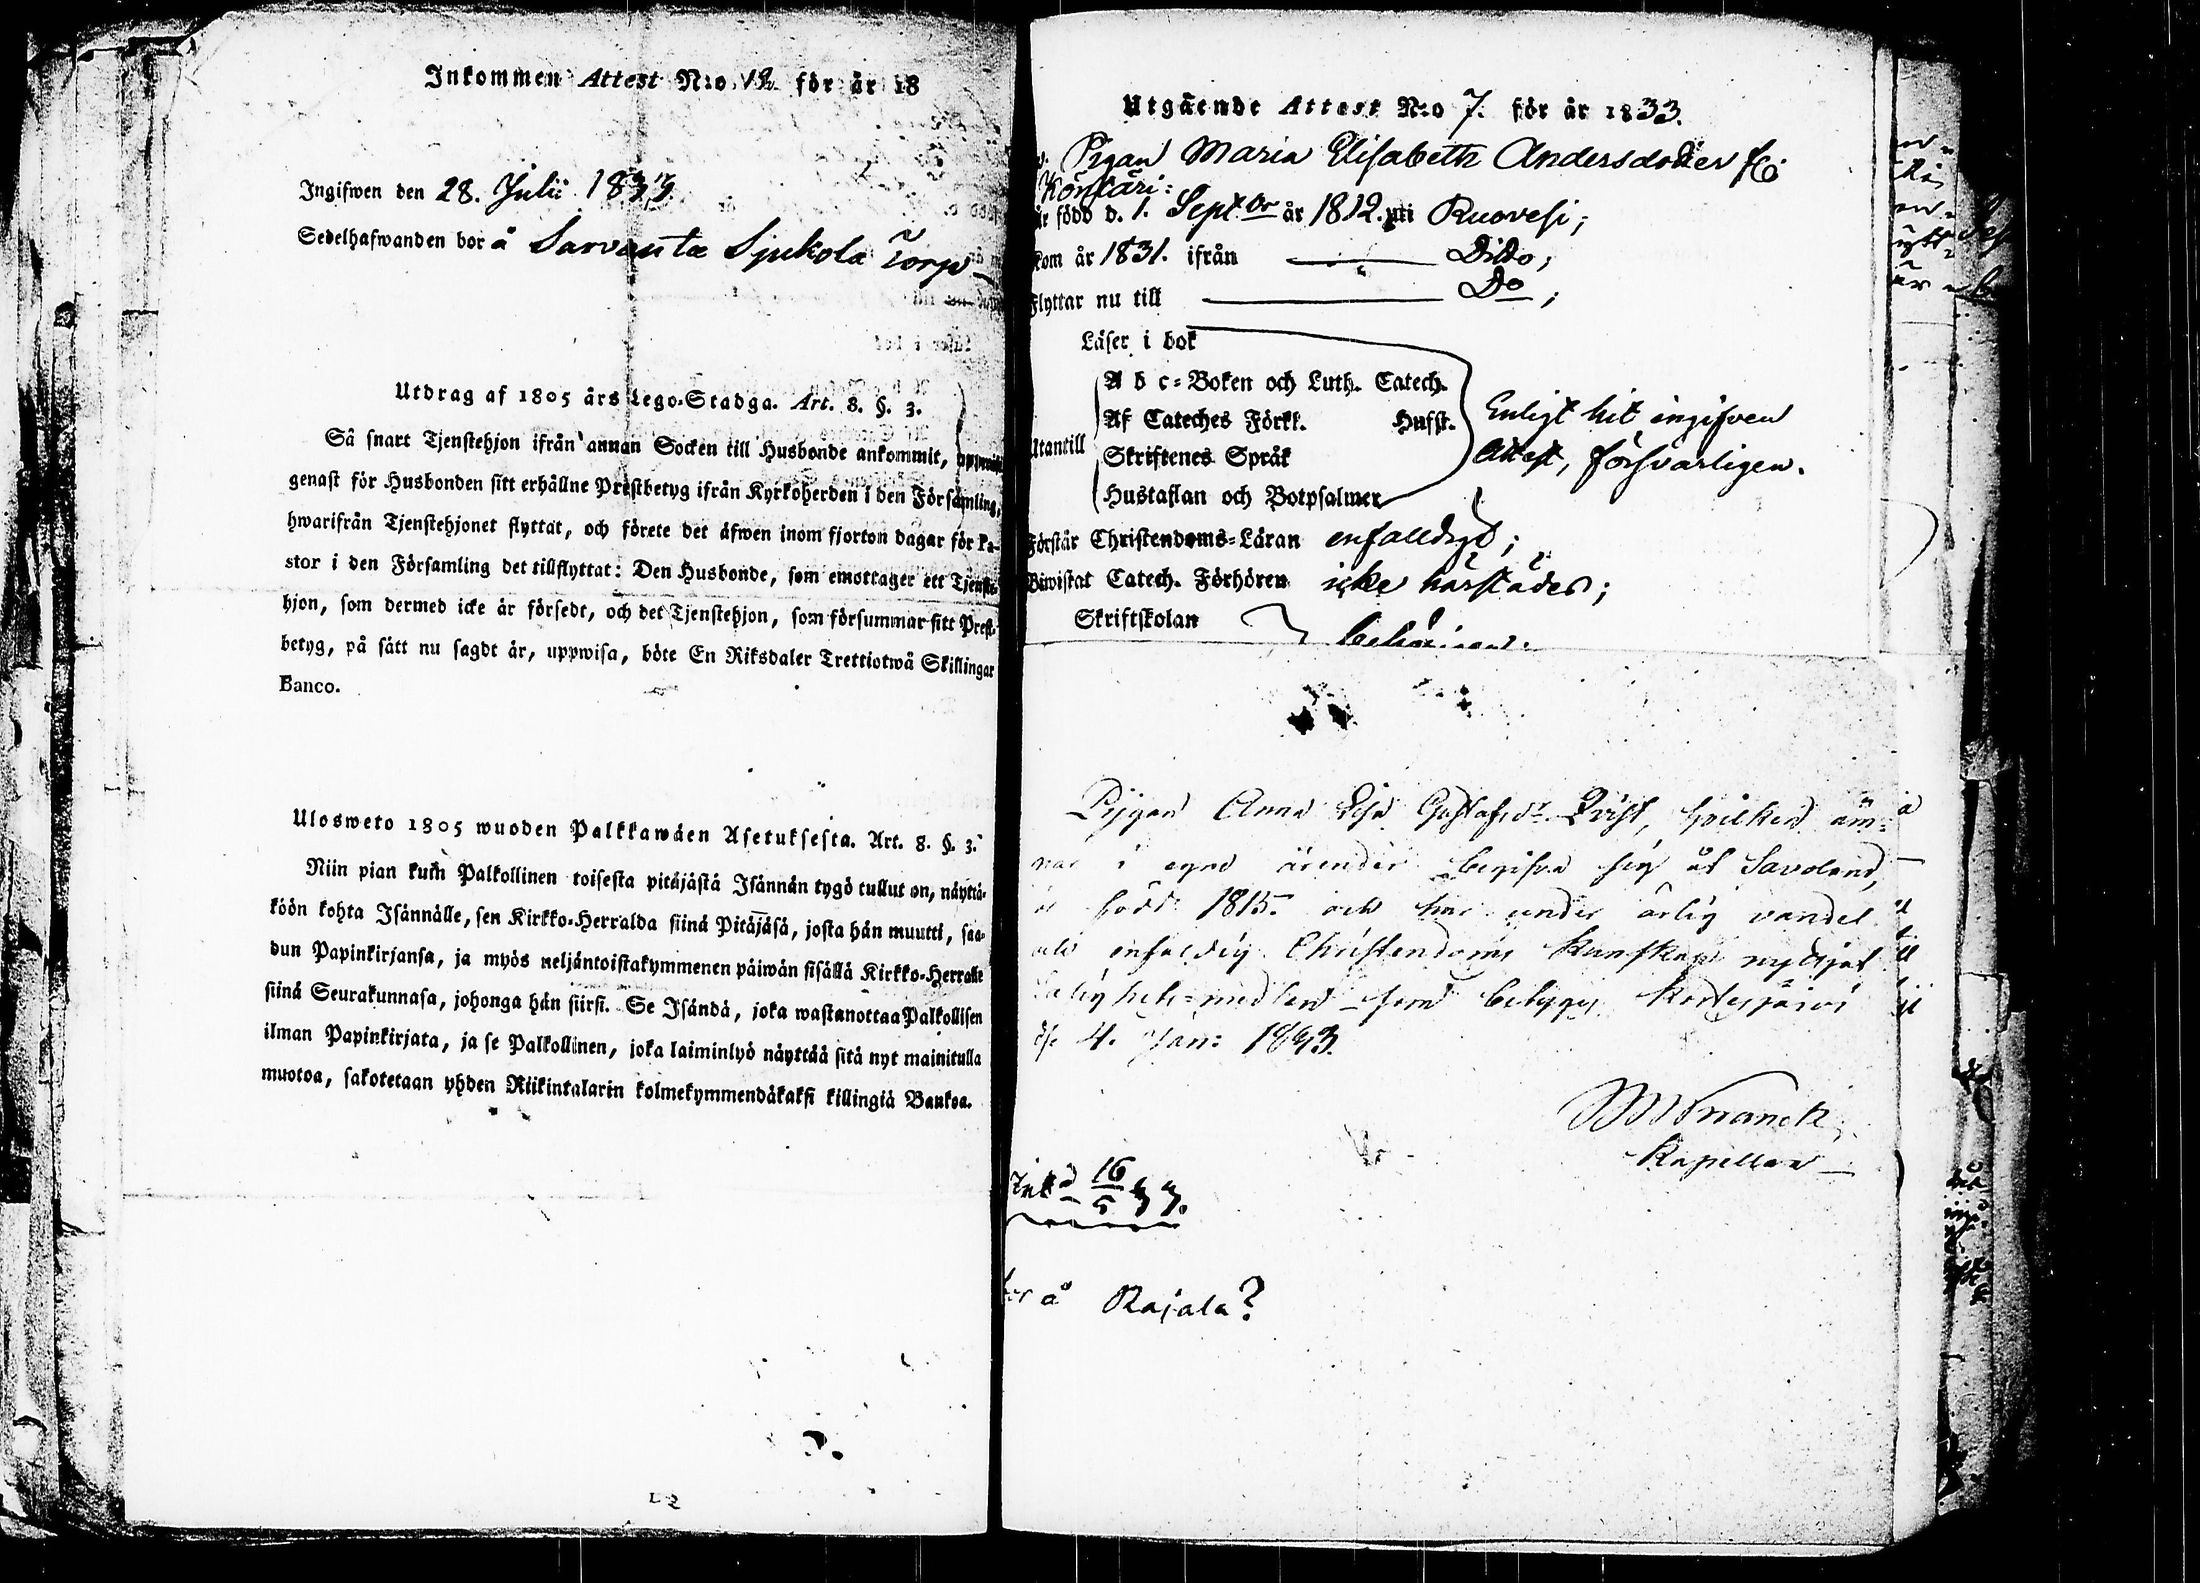 Inkommen Attest N:o 12 för år 18
Ingifwen den 28. Julii 1833
Sedelhafwanden bor å Sarvanta Sjukola Torp
Utdrag af 1805 års Lego-Stadga. Art. 8. §. 3.
Så snart Tjenstehjon ifrån annan Socken till Husbonde ankommit,
genast för Husbonden sitt erhållne Prestbetyg ifrån Kyrkoherden i den Församling,
hwarifrån Tjenstehjonet flyttat, och förete det äfwen inom fjorton dagar för Pa-
stor i den Församling det tillflyttat: Den Husbonde, som emottager ett Tjenste-
hjon, som dermed icke är försedt, och det Tjenstehjon, som försummar sitt Prest-
betyg, på sätt nu sagdt är, uppwisa, böte En Riksdaler Trettiotwå Skillingar
Banco.
Ulosweto 1805 wuoden Palkkawäen Asetuksesta. Art. 8. §. 3.
Niin pian kuin Palkollinen toisesta pitäjästä Isännän tygö tullut on, näyttä-
köön kohta Isännälle, sen Kirkko-Herralda siinä Pitäjäsä, josta hän muutti, saa-
dun Papinkirjansa, ja myös neljäntoistakymmenen päiwän sisällä Kirkko-Herralle
siinä Seurakunnasa, johonga hän siirsi. Se Isändä, joka wastanottaa Palkollisen
ilman Papinkirjata, ja se Palkollinen, joka laiminlyö näyttää sitä nyt mainitulla
muotoa, sakotetaan yhden Riikintalarin kolmekymmendäkaksi killingiä Bankoa.
Utgående Attest N:o 7. för år 1833.
Pigan Maria Elisabeth Andersdotter
Köntäri:
är född d. 1. Sept.br år 1812. uti Ruovesi;
kom år 1831. ifrån Dito;
Flyttar nu till Do;
Läser i bok
A b c-Boken och Luth. Catech.
Af Cateches Förkl. Hufst.
Utantill Skriftenes Språk
Hustaflan och Botpsalmer
Enligt hit ingifven
Attest, försvarligen.
Förstår Christendoms-Läran enfalldigt;
Biwistat Catech. Förhören icke härstädes;
Skriftskolan
Pigan Anna Lisa Gustafsdr Qvist, hvilken äm-
nar i egna ärender begifva sig åt Savoland,
är född 1815. och har under ärlig vandel
och enfaldig Christendoms Kunskap nyttjat
Salighets-medlen som betygar Kortesjärvi
d. 4. Jan: 1833.
Kapellan
Ink:d 16/5 33.
bor å Rajala?